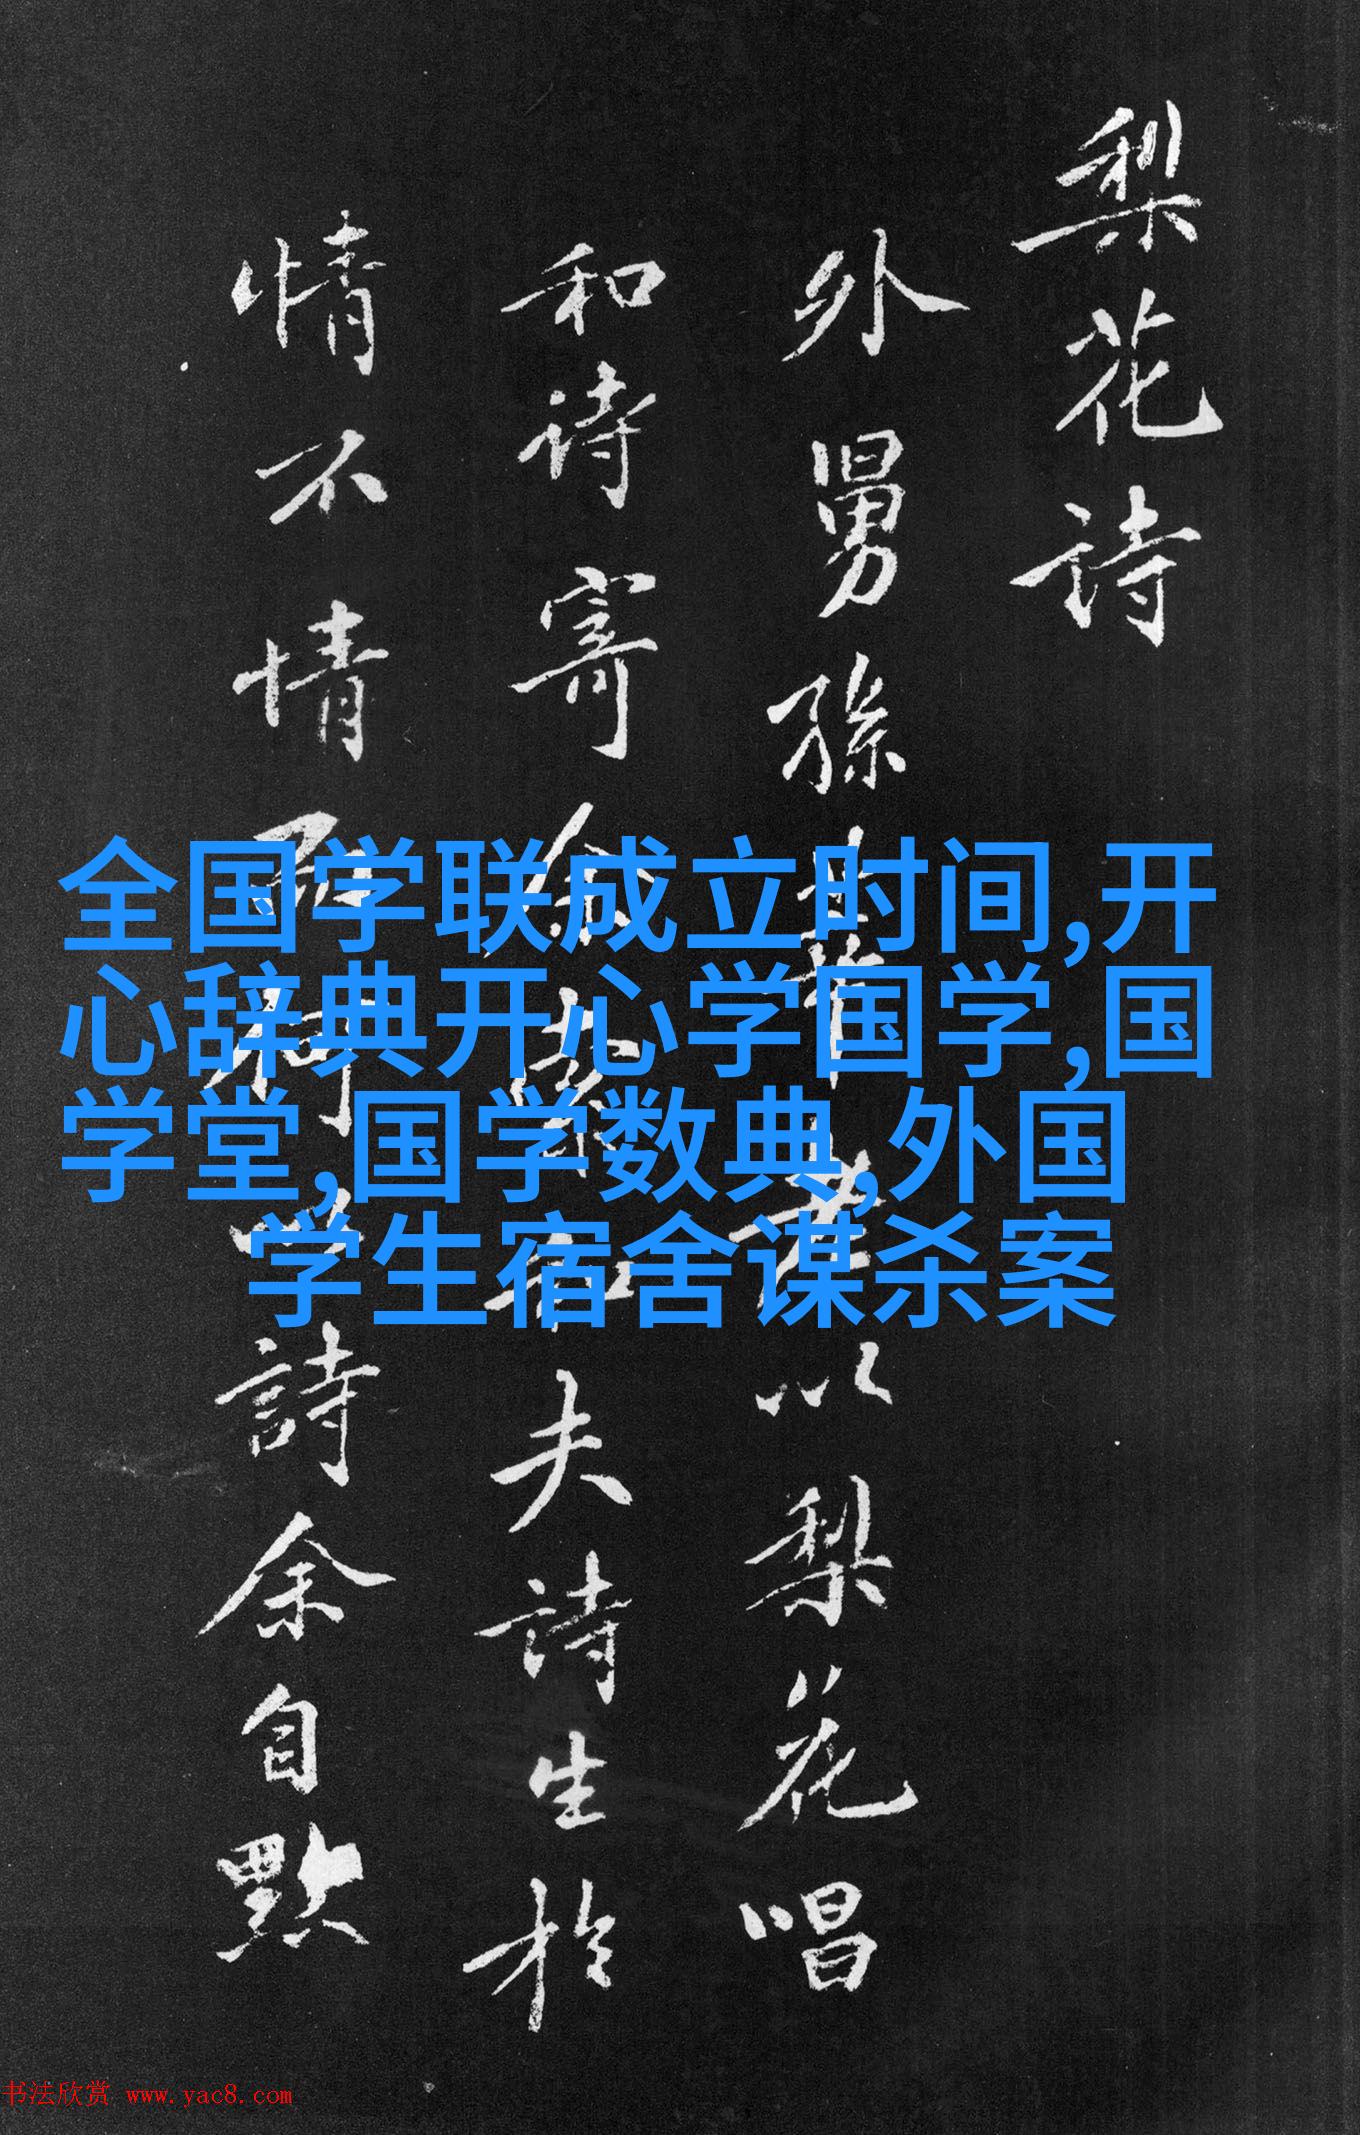 梨花詩
外舅孫莘老以梨花唱
和诗寄余家余夫詩生於
情不情
詩余自點
全国学联成立时间,开
心辞典开心学国学,国
学堂,国学数典,外国
学生宿舍谋杀案
书法欣赏 www.yac8.com